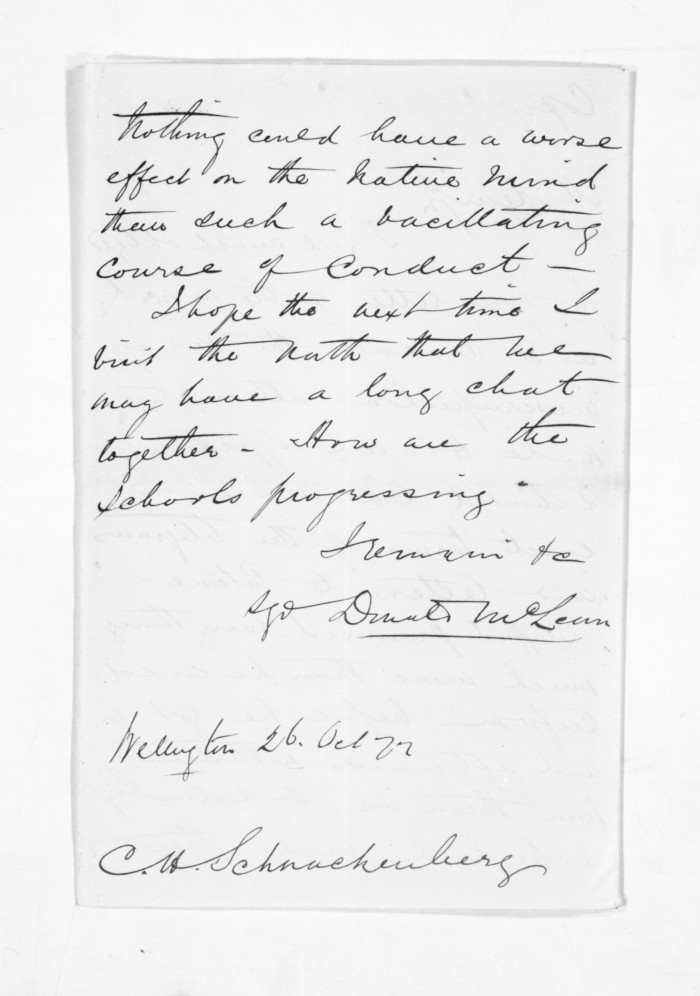 Nothing could have a worse
effect on the Native Mind
than such a vacillating
course of conduct —
I hope the next time I
visit the North that we
may have a long chat
together - How are the
schools progressing
I remain &c
sgd Donald McLean
Wellington 26. Oct 72
C. H. Schnackenberg